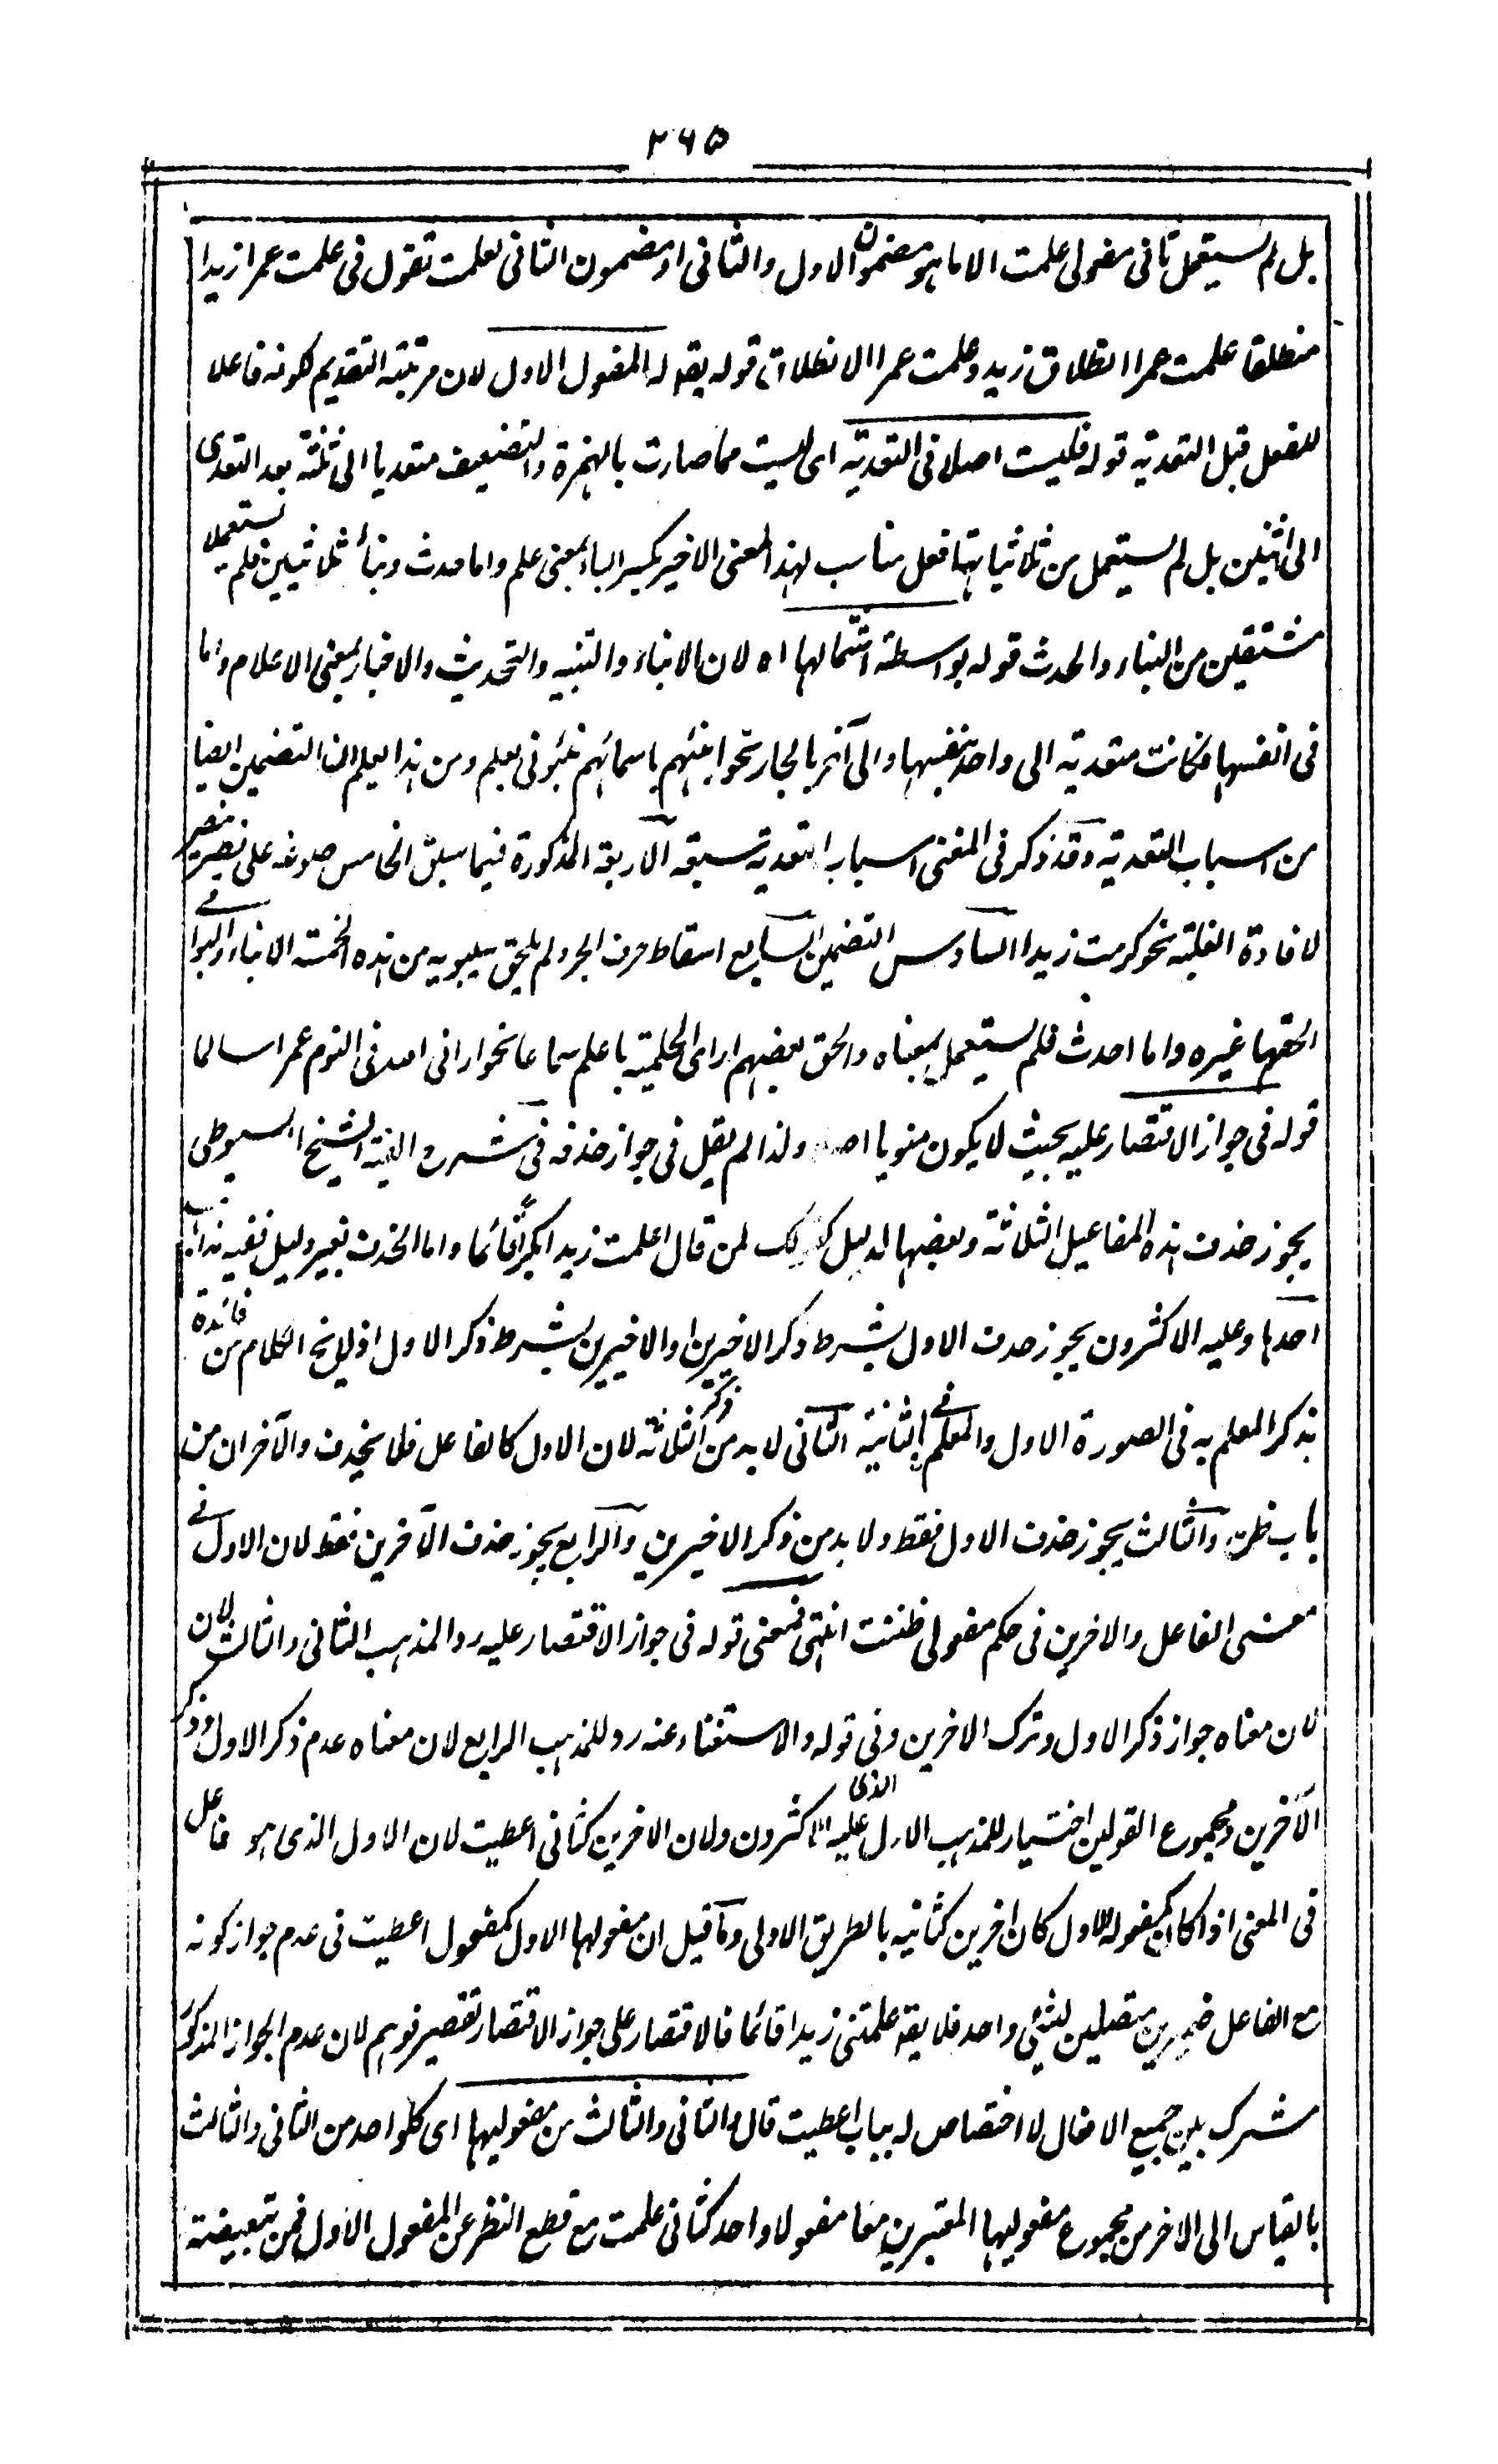 ۲۶۵
بل لم يستعمل ثانى مفعولى علمت الا ما هو مضمون الاول والثانى او مضمون الثانى لعلمت تقول فى علمت عمرا زيدا
منطلقا علمت عمرا انطلاق زيد وعلمت عمرا الانطلاق قوله يقوله المفعول الاول لان مرتبته التقديم لكونه فاعلا
للفعل قبل التعدية قوله فليست اصلا فى التعدية اى ليست مما صارت بالهمزة والتضعيف متعديا الى ثلثة بعد التعدى
الى اثنين بل لم يستعمل من ثلاثياتها فعل مناسب لهذا المعنى الاخير بكسر الباء بمعنى علم واما حدث ونبأ ثلاثيين فلم يستعملا
مشتقين من النباء والحدث قوله بواسطة اشتمالها اه لان الانباء والتنبيه والتحديث والاخبار بمعنى الاعلام واما
فى انفسها فكانت متعدية الى واحد بنفسها والى آخر بالجار نحو انبئهم باسمائهم نبئونى بعلم ومن هذا يعلم ان التضمين ايضا
من اسباب التعدية وقد ذكر فى المغنى اسباب التعدية سبعة الاربعة المذكورة فيما سبق الخامس صوغه على نصر ينصر
لافادة الغلبة نحو كرمت زيدا السادس التضمين السابع اسقاط حرف الجر ولم يلحق سيبويه من هذه الخمسة الا نباء والبواقى
الحقها غيره واما احدث فلم يستعمل بمعناه والحق بعضهم ارى الحلمية باعلم سماعا نحو ارانى الله فى النوم عمرا سالما
قوله فى جواز الاقتصار عليه بحيث لا يكون منويا اصلا ولذا لم يقل فى جواز حذفه فى شرح الفية الشيخ السيوطى
يجوز حذف هذه المفاعيل الثلاثة وبعضها لدليل كقولك لمن قال اعلمت زيدا بكرا قائما واما الحذف بغير دليل ففيه مذاهب
احدها وعليه الاكثرون يجوز حذف الاول بشرط ذكر الاخيرين او الاخيرين بشرط ذكر الاول اذ لا يخ الكلام من فائدة
بذكر المعلم به فى الصورة الاول والمعلم فى الثانية الثانى لا بد من ذكر الثلاثة لان الاول كالفاعل فلا يحذف والآخران من
باب ظن والثالث يجوز حذف الاول فقط ولا بد من ذكر الاخيرين والرابع يجوز حذف الآخرين فقط لان الاول فى
معنى الفاعل والاخرين فى حكم مفعولى ظننت انتهى فمعنى قوله فى جواز الاقتصار عليه رد المذهب الثانى والثالث لان
لان معناه جواز ذكر الاول وترك الاخرين وفى قوله والاستغناء عنه رد للمذهب الرابع لان معناه عدم ذكر الاول وذكر
الآخرين ومجموع القولين اختيار للمذهب الاول الذى عليه الاكثرون ولان الاخرين كثانى اعطيت لان الاول الذى هو فاعل
فى المعنى اذا كان كمفعوله الاول كان اخرين كثانيه بالطريق الاولى وما قيل ان مفعولها الاول كمفعول اعطيت فى عدم جواز كونه
مع الفاعل ضميرين متصلين لشئ واحد فلا يقه علمتنى زيدا قائما فالاقتصار على جواز الاقتصار تقصير فوهم لان عدم الجواز المذكور
مشترك بين جميع الافعال لا اختصاص له بباب اعطيت قال والثانى والثالث من مفعوليها اى كلواحد من الثانى والثالث
بالقياس الى الاخر من مجموع مفعوليها المعتبرين معا مفعولا واحد كثانى علمت مع قطع النظر عن المفعول الاول فمن تبعيضة